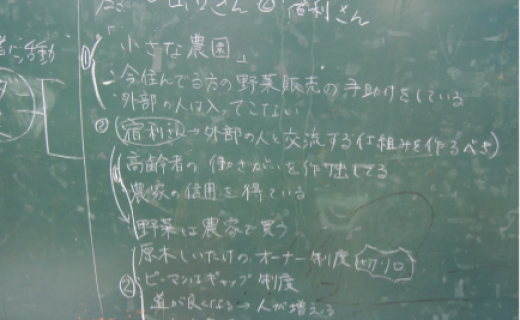 さん ② 宿利さん
者に 活動
① 「小さな農園」
・今住んでる方の野菜販売の手助けをしている
・外部の人は入ってこない
② 宿利さん→外部の人と交流する仕組みを作るべき
① 高齢者の働きがいを作り出してる
農家の信用を得ている
野菜は農家で買う
② 原木しいたけのオーナー制度 切り口
ピーマンは 制度
道が良くなる→人が増える